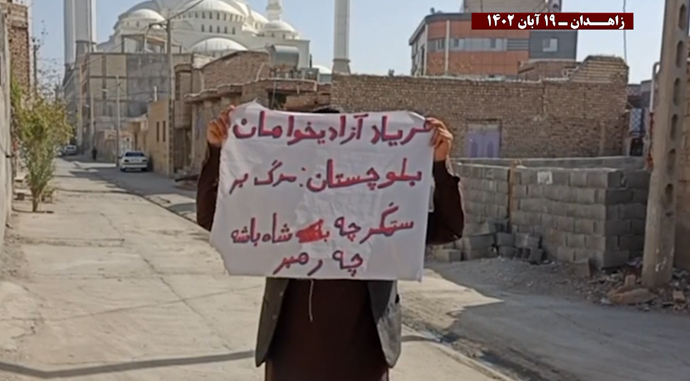 زاهدان – ۱۹ آبان ۱۴۰۲
فریاد آزادیخواهان
بلوچستان: مرگ بر
ستمگر چه شاه باشه
چه رهبر